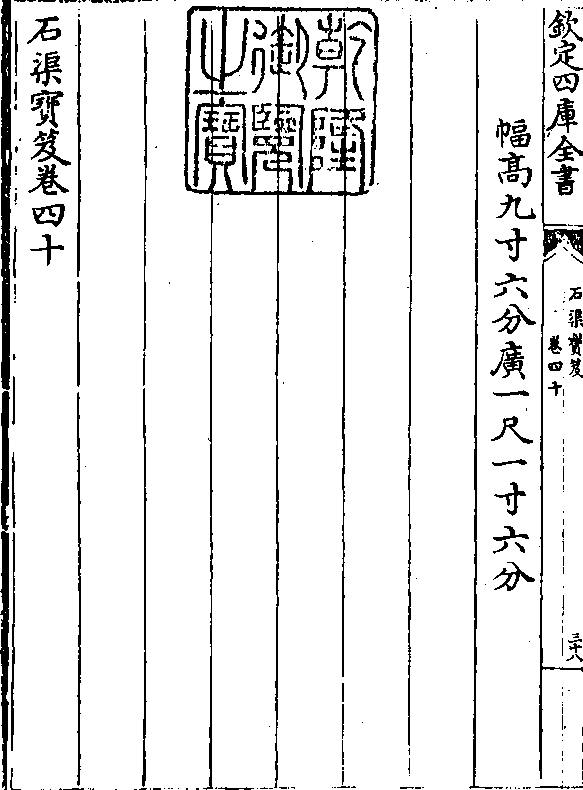 欽定四庫全書
石渠寶笈
卷四十
三十八
幅高九寸六分廣一尺一寸六分
乾隆
御覽
之寶
石渠寶笈卷四十